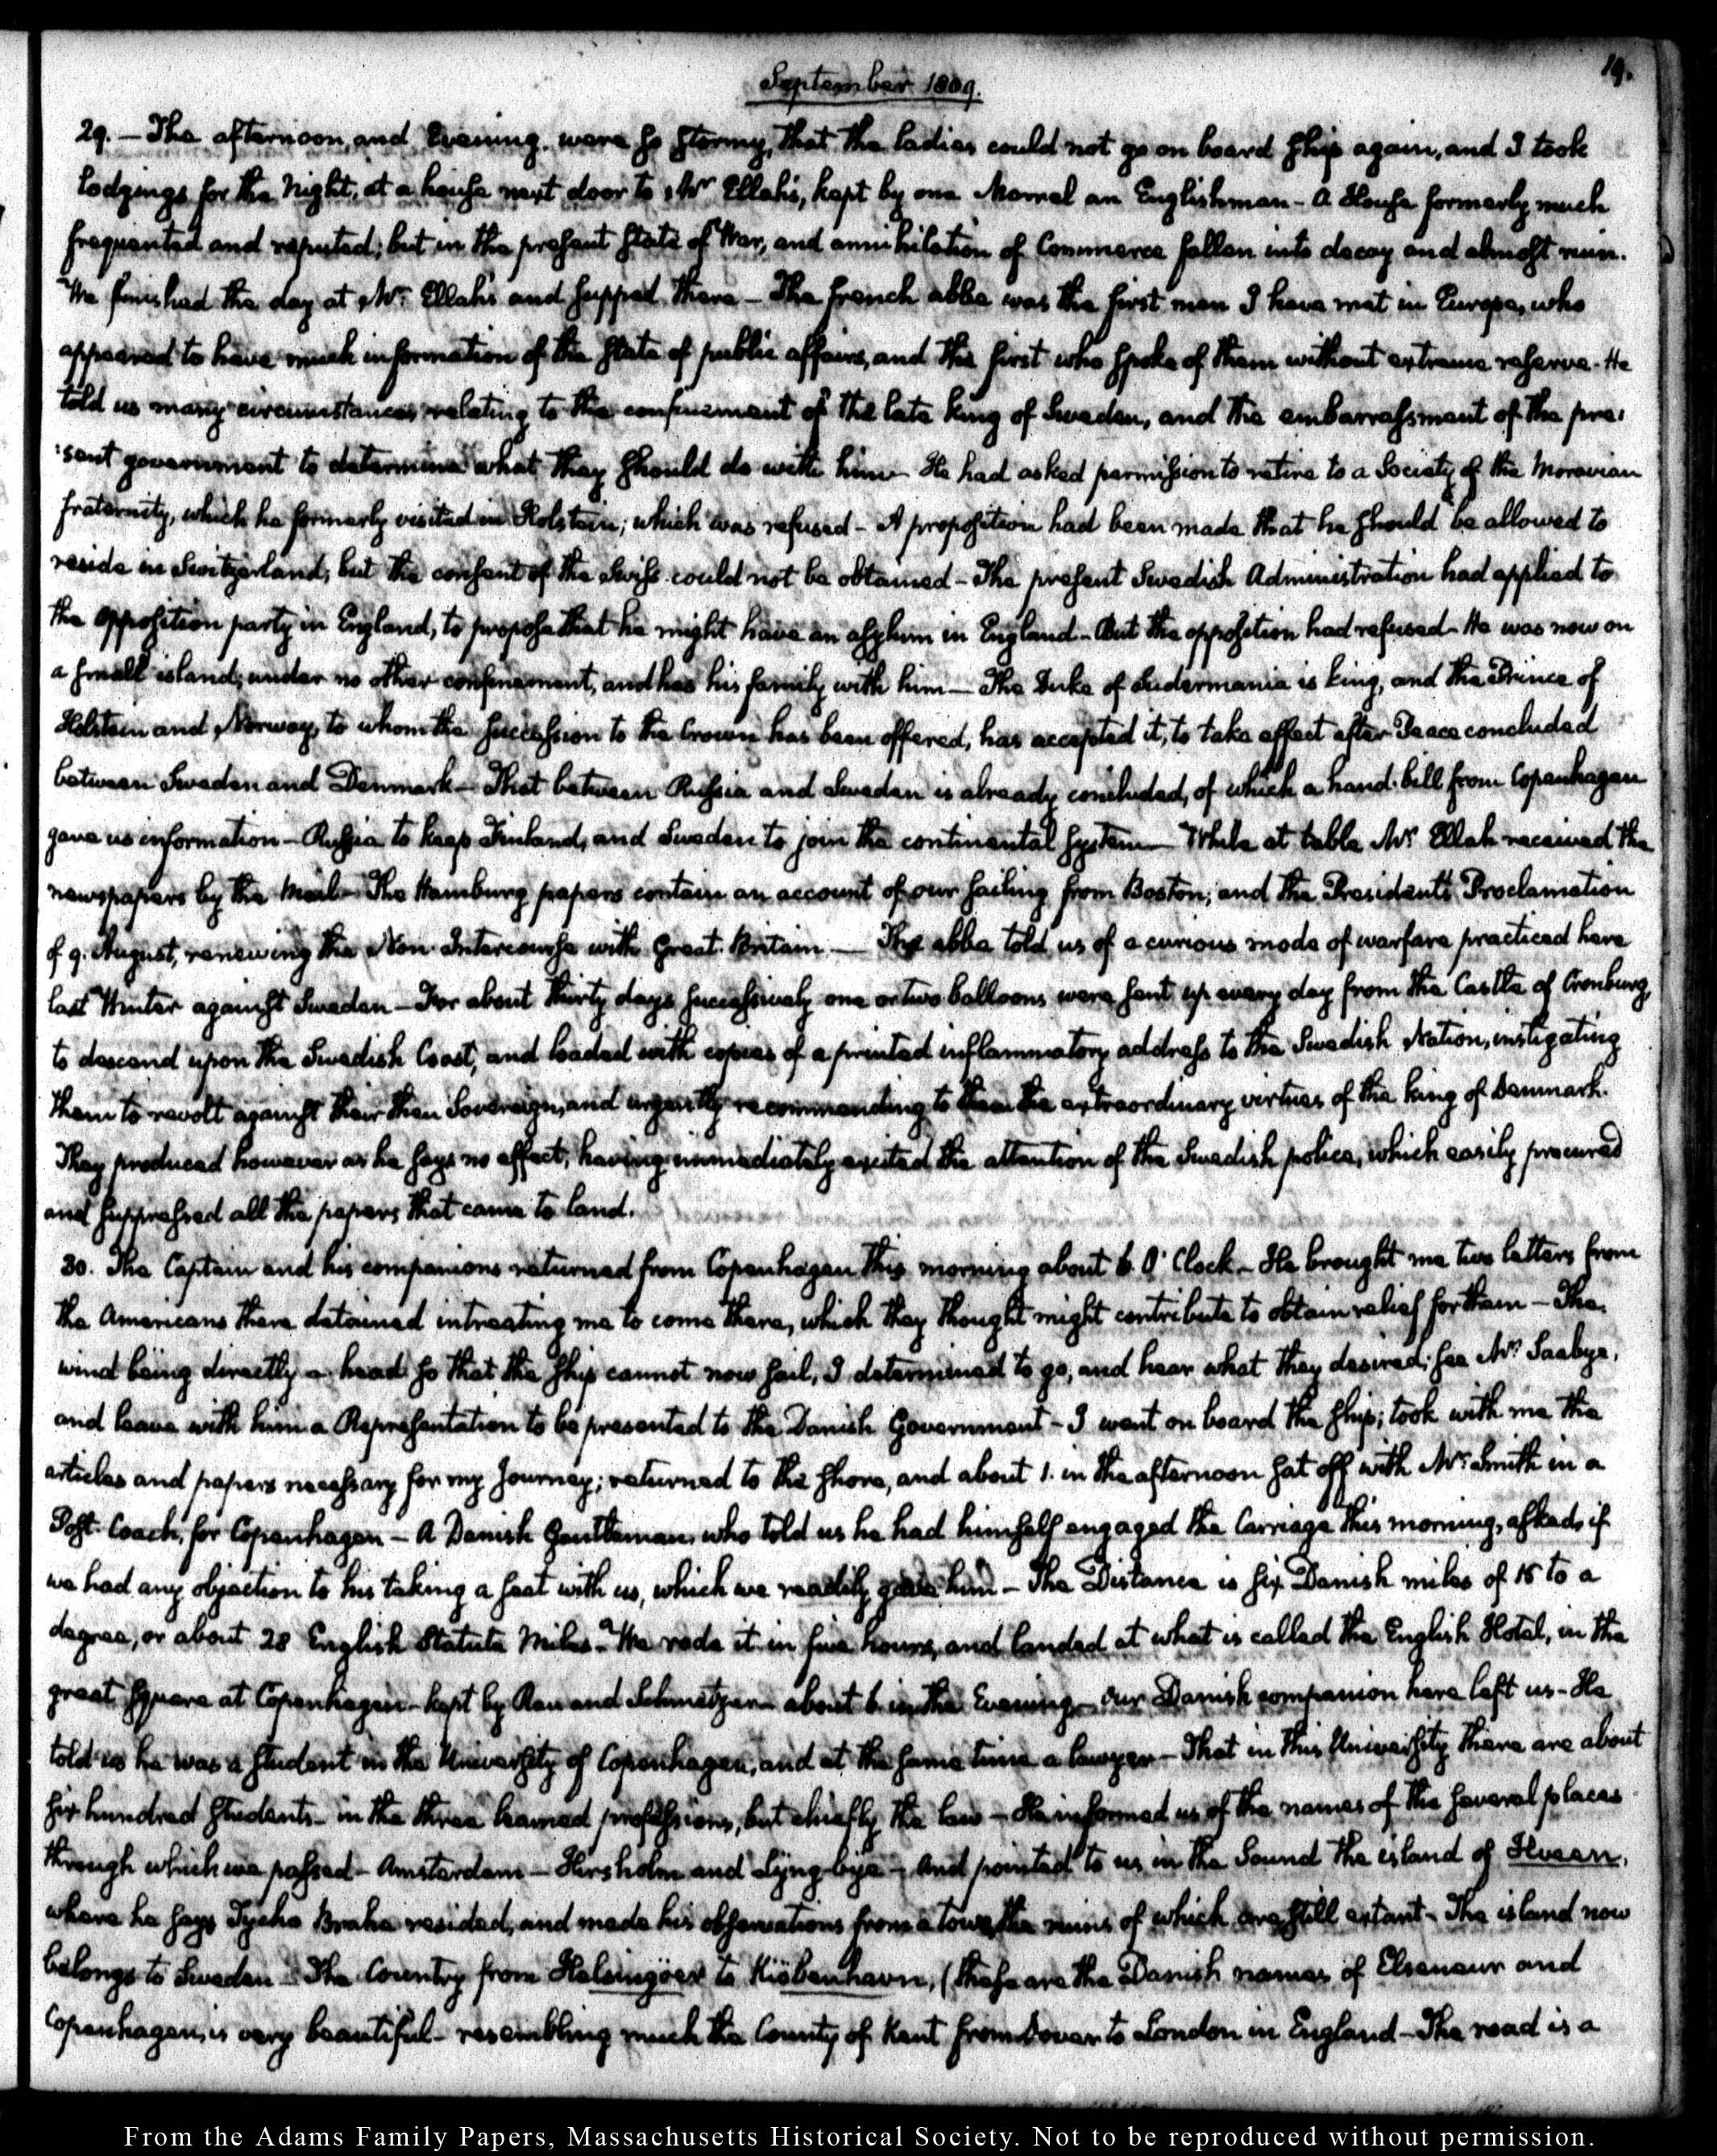 September 1809.
19.
29. — The afternoon, and Evening. were so stormy, that the ladies could not go on board ship again, and I took
lodgings for the Night, at a house next door to Mr Ellah's, kept by one an Englishman - A House formerly much
frequented and reputed; but in the present state of War, and annihilation of Commerce fallen into decay and almost ruin.
We finished the day at Mr. Ellah's and supped there — The french abbe was the first man I have met in Europe, who
appeared to have much information of the state of public affairs, and the first who spoke of them without extreme reserve. He
told us many circumstances relating to the confinement of the late king of Sweden, and the embarrassment of the pre:
:sent government to determine what they should do with him — He had asked permission to retire to a Society of the Moravian
fraternity, which he formerly visited in Holstein; which was refused - A proposition had been made that he should be allowed to
reside in Switzerland; but the consent of the Swiss could not be obtained - The present Swedish Administration had applied to
the opposition party in England, to propose that he might have an asylum in England - But the opposition had refused - He was now on
a small island; under no other confinement, and has his family with him — The Duke of Sudermania is king, and the Prince of
Holstein and Norway, to whom the succession to the Crown has been offered, has accepted it, to take effect after Peace concluded
between Sweden and Denmark — That between Russia and Sweden is already concluded, of which a hand-bill from Copenhagen
gave us information - Russia to keep Finland, and Sweden to join the continental system — While at table Mr. Ellah received the
newspapers by the Mail — The Hamburg papers contain an account of our sailing from Boston; and the President's Proclamation
of 9. August, renewing the Non-Intercourse with Great-Britain. — The abbe told us of a curious mode of warfare practiced here
last Winter against Sweden — For about thirty days successively one or two balloons were sent up every day from the Castle of Cronburg,
to descend upon the Swedish Coast, and loaded with copies of a printed inflammatory address to the Swedish Nation, instigating
them to revolt against their then Sovereign, and urgently recommending to them the extraordinary virtues of the king of Denmark.
They produced however as he says no effect; having immediately excited the attention of the Swedish police, which easily procured
and suppressed all the papers that came to land.
30. The Captain and his companions returned from Copenhagen this morning about 6. O'Clock — He brought me two letters from
the Americans there detained intreating me to come there, which they thought might contribute to obtain relief for them — The
wind being directly a-head so that the ship cannot now sail, I determined to go, and hear what they desired; see Mr. Saabye,
and leave with him a Representation to be presented to the Danish Government - I went on board the ship; took with me the
articles and papers necessary for my Journey; returned to the shore, and about 1. in the afternoon sat off with Mr. Smith in a
Post-Coach, for Copenhagen — A Danish Gentleman, who told us he had himself engaged the Carriage this morning, asked, if
we had any objection to his taking a seat with us, which we readily gave him — The Distance is six Danish miles of 15 to a
degree, or about 28 English Statute Miles. We rode it in five hours, and landed at what is called the English Hotel, in the
great square at Copenhagen — kept by Rau and — about 6 in the Evening — Our Danish companion here left us - He
told us he was a student in the University of Copenhagen, and at the same time a lawyer — That in this University there are about
six hundred students - in the three learned professions, but chiefly the law — He informed us of the names of the several places
through which we passed — Amsterdam — Hirsholm and Lyng-bye — And pointed to us in the Sound the island of Hveen,
where he says Tycho Brahe resided, and made his observations from a tower, the ruins of which are still extant - The island now
belongs to Sweden — The Country from Helsingöer to Kiöbenhavn, (these are the Danish names of Elseneur and
Copenhagen, is very beautiful - resembling much the County of Kent from Dover to London in England — The road is a
From the Adams Family Papers, Massachusetts Historical Society. Not to be reproduced without permission.